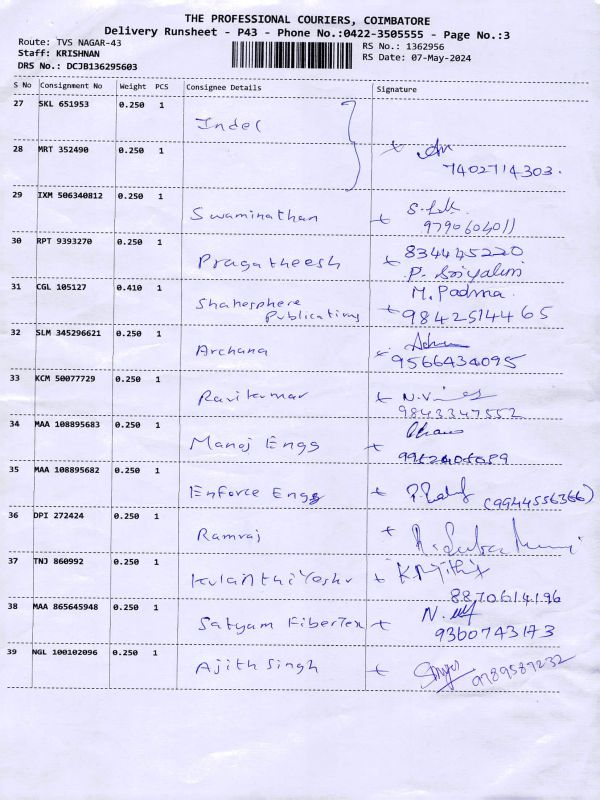 THE PROFESSIONAL COURIERS, COIMBATORE
Delivery Runsheet - P43 - Phone No.:0422-3505555 - Page No.:3
Route: TVS NAGAR-43
RS No.: 1362956
Staff: KRISHNAN
RS Date: 07-May-2024
DRS No.: DCJB136295603
S No Consignment No Weight PCS Consignee Details Signature
27 SKL 651953 0.250 1 Indel
28 MRT 352490 0.250 1
7402714303.
29 IXM 506340812 0.250 1 Swaminathan
9790604011
30 RPT 9393270 0.250 1 Pragatheesh 834445220
P. Sriyalini
31 CGL 105127 0.410 1 Shakesphere M. Padma.
Publications 9842514465
32 SLM 345296621 0.250 1 Archana
9566434095
33 KCM 50077729 0.250 1 Ravikumar
9843347552
34 MAA 108895683 0.250 1 Manoj Engg
35 MAA 108895682 0.250 1 Enforce Engg (9944556366)
36 DPI 272424 0.250 1 Ramraj
37 TNJ 860992 0.250 1
8870614196
38 MAA 865645948 0.250 1 Satyam Fibertex
9360743173
39 NGL 100102096 0.250 1 Ajith Singh
9789589232